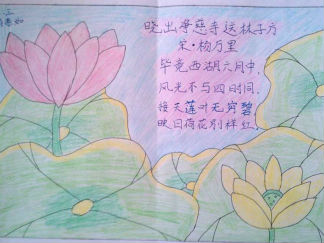 晓出净慈寺送林子方
宋·杨万里
毕竟西湖六月中，
风光不与四时同。
接天莲叶无穷碧
映日荷花别样红。